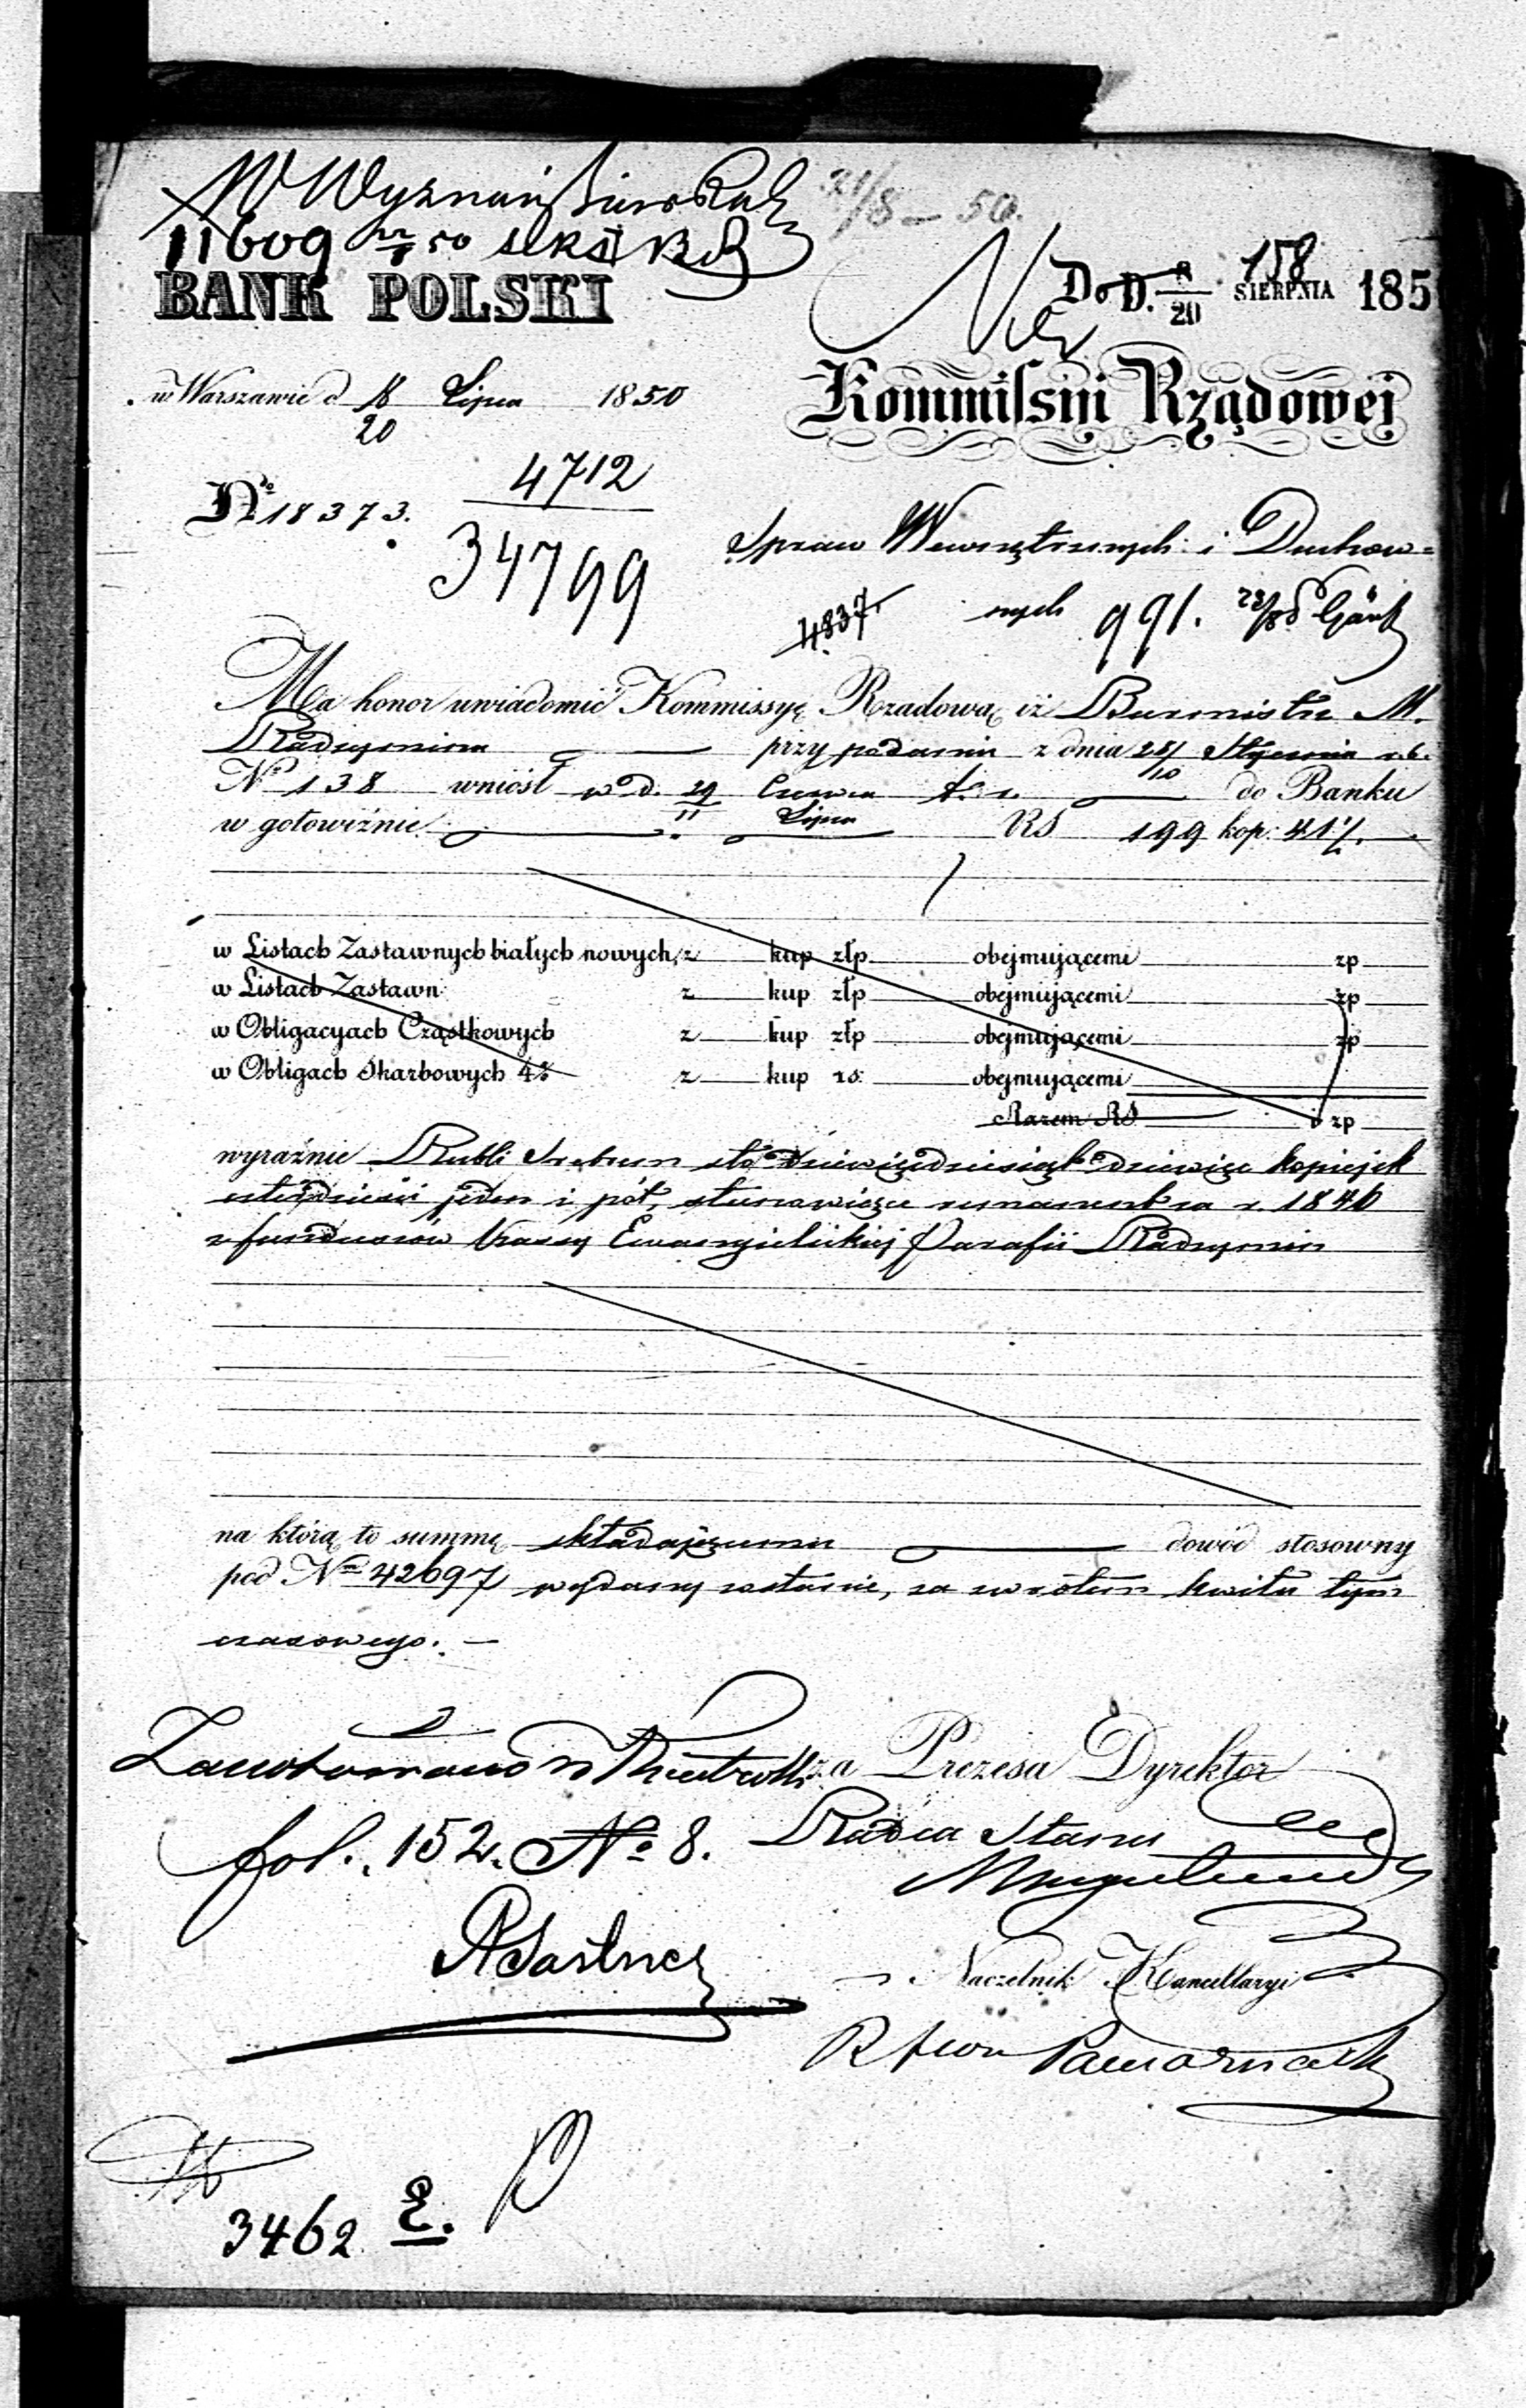 W Wyznań
11609
21/8 – 50.
BANK POLSKI
Do D. 8/20 SIERPNIA 185
158
w Warszawie d 8/20 Lipca 1850
Kommissyi Rządowej
No 18373.
4712
34799
Spraw Wewnętrznych i Duchow=
nych 991.
4837
Ma honor uwiadomić Kommissyę Rządową iż Burmistrz M.
Radzymina przy podaniu z dnia Stycznia r. b.
No 138 wniósł w d. 29/11 Czerwca/Lipca t. r. do Banku
w gotowiźnie RS 199 kop: 41½.
w Listach Zastawnych białych nowych, z kup złp obejmującemi zp
w Listach Zastawn z kup złp obejmującemi zp
w Obligacyach Cząstkowych z kup złp obejmującemi zp
w Obligach Skarbowych 4% z kup rs: obejmującemi
Razem RS i zp
wyraźnie Rubli Srebrem sto dziewięćdziesiąt dziewięć kopiejek
czterdzieści jeden i pół, stanowiące remanent za r. 1846
z funduszów Kassy Ewangielickiej Parafii Radzymin
na którą to summę składającemu dowód stosowny
pod Nem 42697 wydany zostanie, za zwrotem kwitu tym
czasowego. –
Zanotowano w Kontrolli
fol. 152. No 8.
za Prezesa Dyrektor
Radca Stanu
Naczelnik Kancellaryi
3462 E.